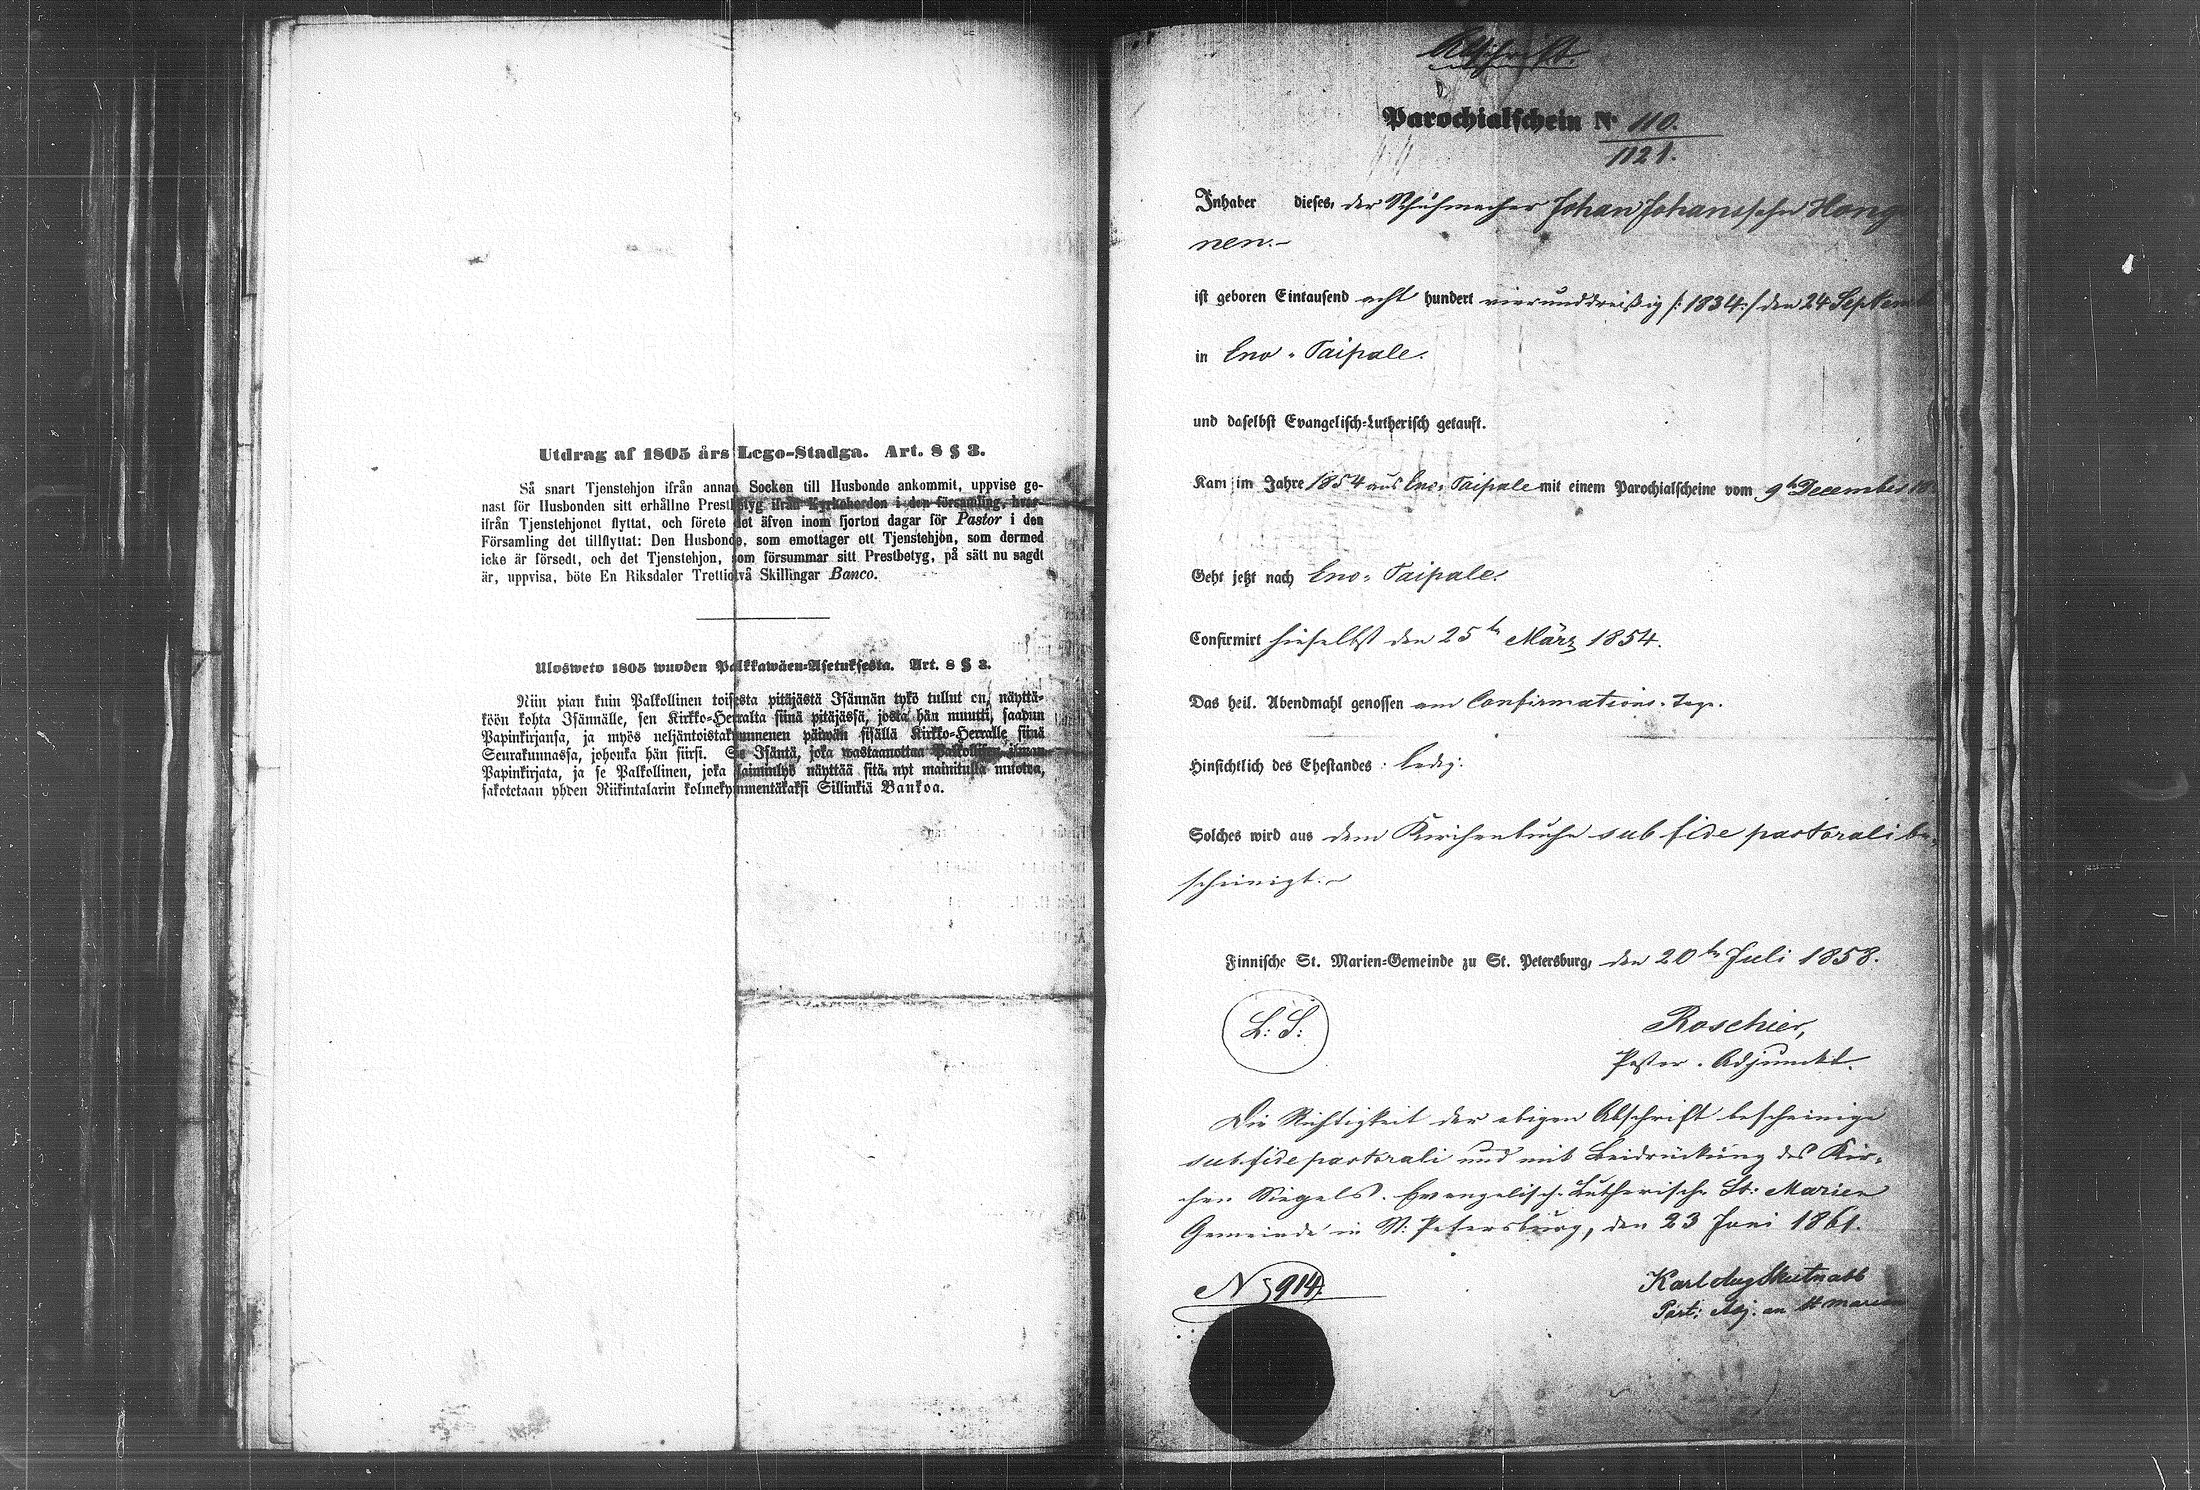 Utdrag af 1805 års Lego-Stadga. Art. 8 § 3.
Så snart Tjenstehjon ifrån annan Socken till Husbonde ankommit, uppvise ge-
nast för Husbonden sitt erhållne Prestbetyg ifrån Kyrkoherden i den församling, hvar-
ifrån Tjenstehjonet flyttat, och förete det äfven inom fjorton dagar för Pastor i den
Församling det tillflyttat: Den Husbonde, som emottager ett Tjenstehjon, som dermed
icke är försedt, och det Tjenstehjon, som försummar sitt Prestbetyg, på sätt nu sagdt
är, uppvisa, böte En Riksdaler Trettiotvå Skillingar Banco.
Ulosweto 1805 wuoden Palkkawäen-Asetuksesta. Art. 8 § 3.
Niin pian kuin Palkollinen toisesta pitäjästä Isännän tykö tullut on, näyttä-
köön kohta Isännälle, sen Kirkko-Herralta siinä pitäjässä, josta hän muutti, saadun
Papinkirjansa, ja myös neljäntoistakymmenen päiwän sisällä Kirkko-Herralle siinä
Seurakunnassa, johonka hän siirsi. Se Isäntä, joka wastaanottaa Palkollisen ilman
Papinkirjata, ja se Palkollinen, joka laiminlyö näyttää sitä nyt mainitulla muotoa,
sakotetaan yhden Riikintalarin kolmekymmentäkaksi Sillinkiä Bankoa.
Abschrift.
Parochialschein No 110.
1121.
Inhaber dieses, der Schuhmacher Johan Johanssohn Hong
nen.-
ist geboren Eintausend acht hundert vierunddreißig /:1834:/ den 24 Septem
in Eno-Taipale.
und daselbst Evangelisch-Lutherisch getauft.
Kam im Jahre 1854 aus Eno-Taipale mit einem Parochialscheine vom 9n December
Geht jetzt nach Eno-Taipale.
Confirmirt hieselbst den 25n März 1854.
Das heil. Abendmahl genossen am Confirmations-Tage.
Hinsichtlich des Ehestandes: ledig.
Solches wird aus dem Kirchenbuche sub fide pastorali be-
scheinigt.-
Finnische St. Marien-Gemeinde zu St. Petersburg, den 20n Juli 1858.
L: S:
Roschier,
Pastor-Adjunckt.
Die Richtigkeit der obigen Abschrift bescheinige
sub fide pastorali und mit Beidrückung des Kir-
chen Siegels. Evangelisch-Lutherische St: Marien
Gemeinde in St: Petersburg, den 23 Juni 1861.
N 914.
Karl Aug Skutnabb
Past: Adj. an St Marien